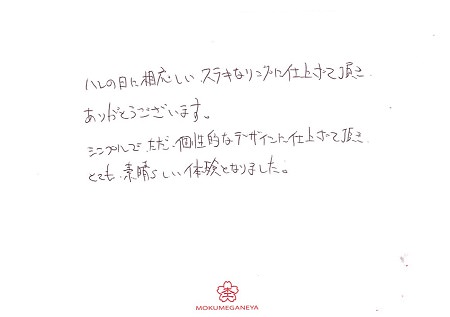 ハレの日に相応しいステキなリングに仕上げて頂き
ありがとうございます。
シンプルで、ただ、個性的なデザインに仕上げて頂き
とても、素晴らしい体験となりました。
MOKUMEGANEYA